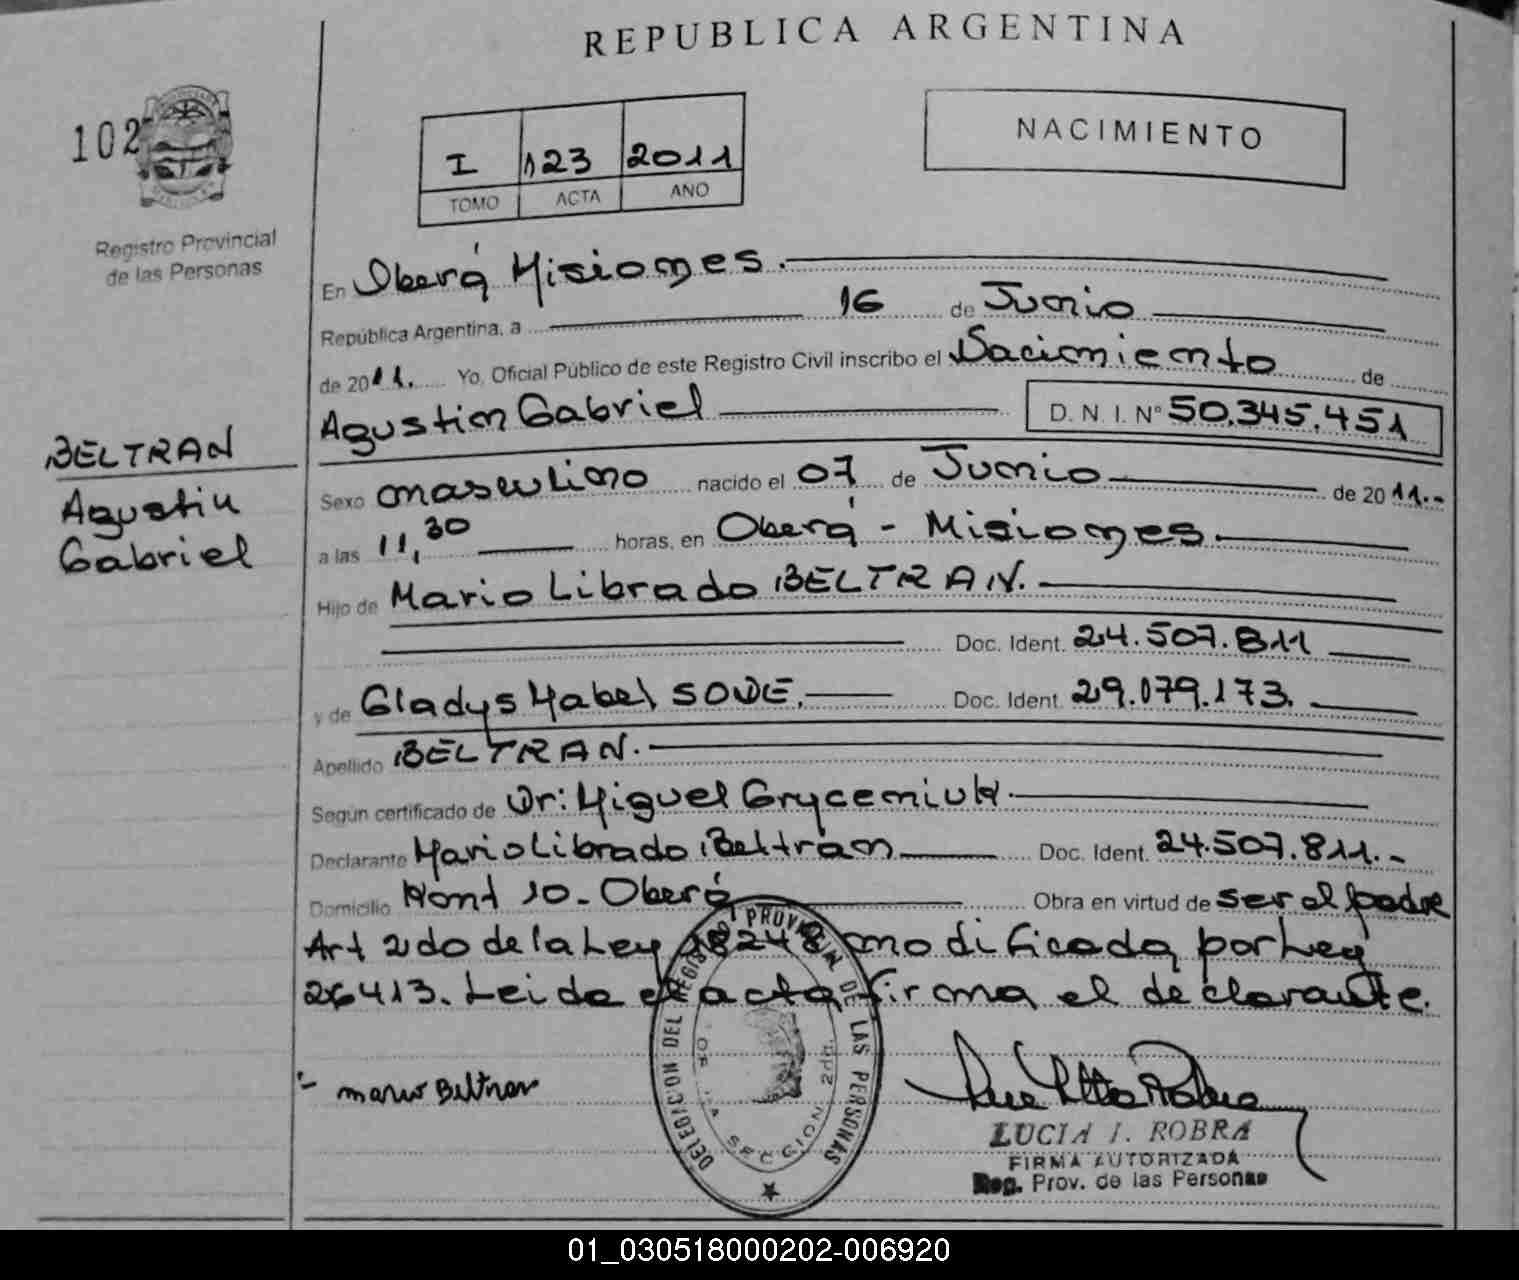 REPUBLICA ARGENTINA
102
I 123 2011
TOMO ACTA AÑO
NACIMIENTO
Registro Provincial
de las Personas
En Oberá Misiones.
República Argentina, a 16 de Junio
de 2011. Yo, Oficial Público de este Registro Civil inscribo el Nacimiento de
Agustin Gabriel D. N. I. Nº 50.345.451
BELTRAN
Agustin
Gabriel
Sexo masculino nacido el 07 de Junio de 2011.-
a las 11,30 horas, en Oberá - Misiones.
Hijo de Mario Librado BELTRAN.
Doc. Ident. 24.507.811
y de Gladys Mabel SODE. Doc. Ident. 29.079.173.
Apellido BELTRAN.
Según certificado de Dr: Miguel Gryceniuk.
Declarante Mario Librado Beltran Doc. Ident. 24.507.811.-
Domicilio Km 10 - Oberá Obra en virtud de ser el padre
Art 2do de la Ley 18248 modificada por Ley
26413. Leida el acta firma el declarante.
Mario Beltran
DELEGACION DEL REGISTRO PROVINCIAL DE LAS PERSONAS
SECCION 2da.
LUCIA I. ROBRA
FIRMA AUTORIZADA
Reg. Prov. de las Personas
01_030518000202-006920